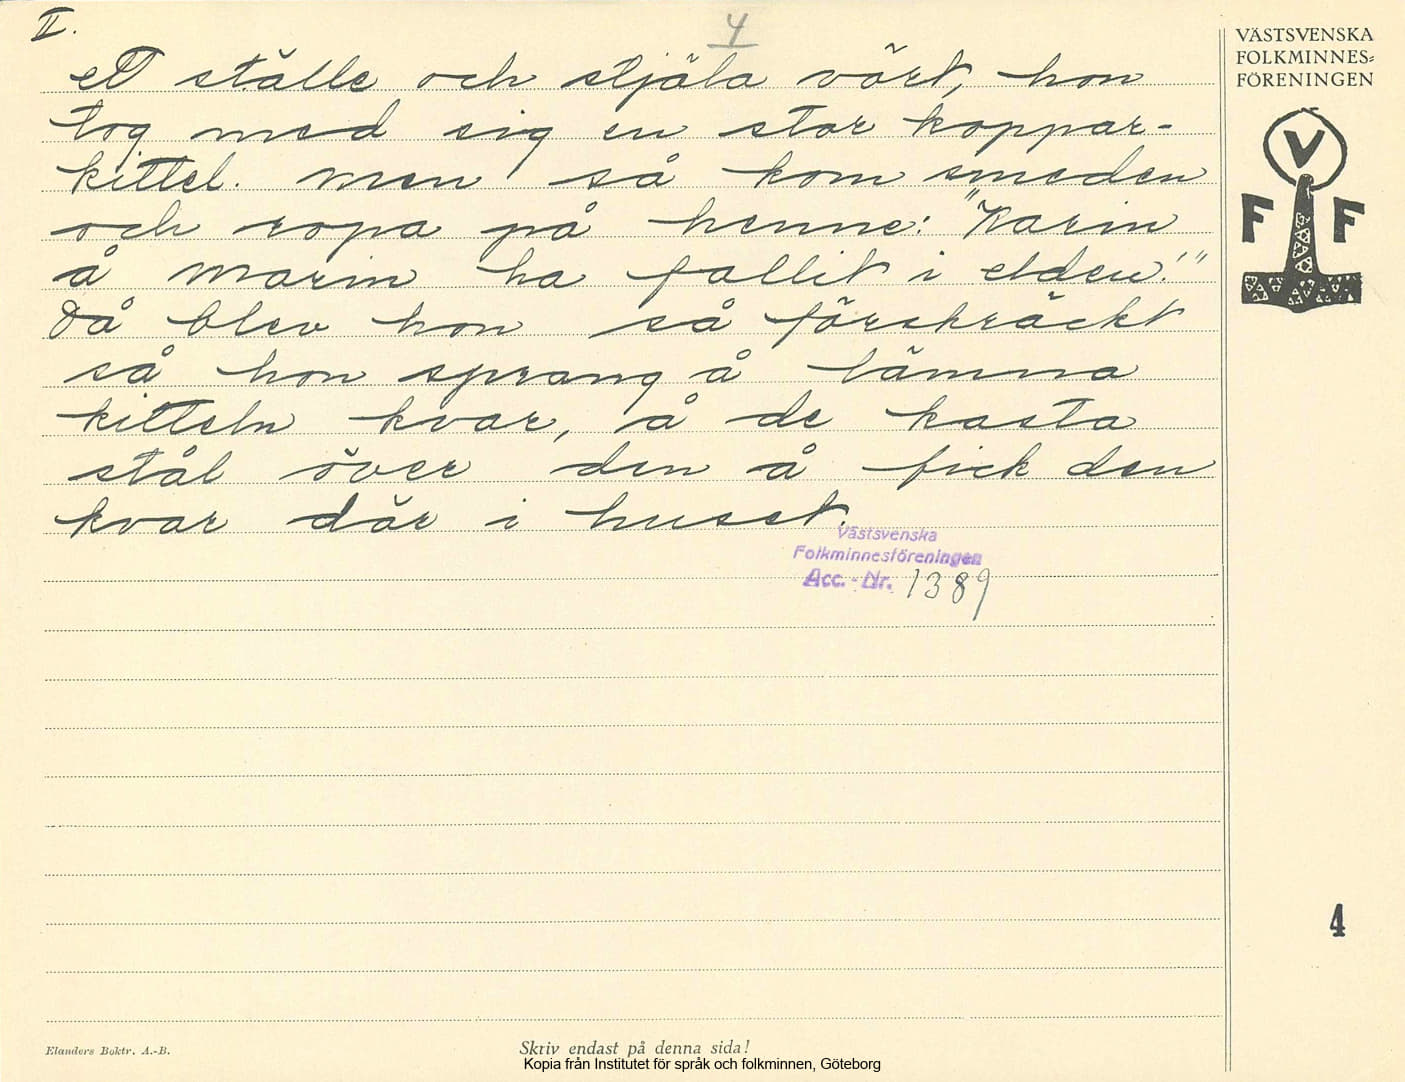 II.
4
ett ställe och stjäla vört, hon
tog med sig en stor koppar-
kittel. men så kom smeden
och ropa på henne: "Karin
å marin ha fallit i elden!"
då blev hon så förskräckt
så hon sprang å lämna
kitteln kvar, å de kasta
stål över den å fick den
kvar där i huset.
Västsvenska
Folkminnesföreningen
Acc. - Nr. 1389
VÄSTSVENSKA
FOLKMINNES=
FÖRENINGEN
V
F F
4
Elanders Boktr. A.-B.
Skriv endast på denna sida!
Kopia från Institutet för språk och folkminnen, Göteborg